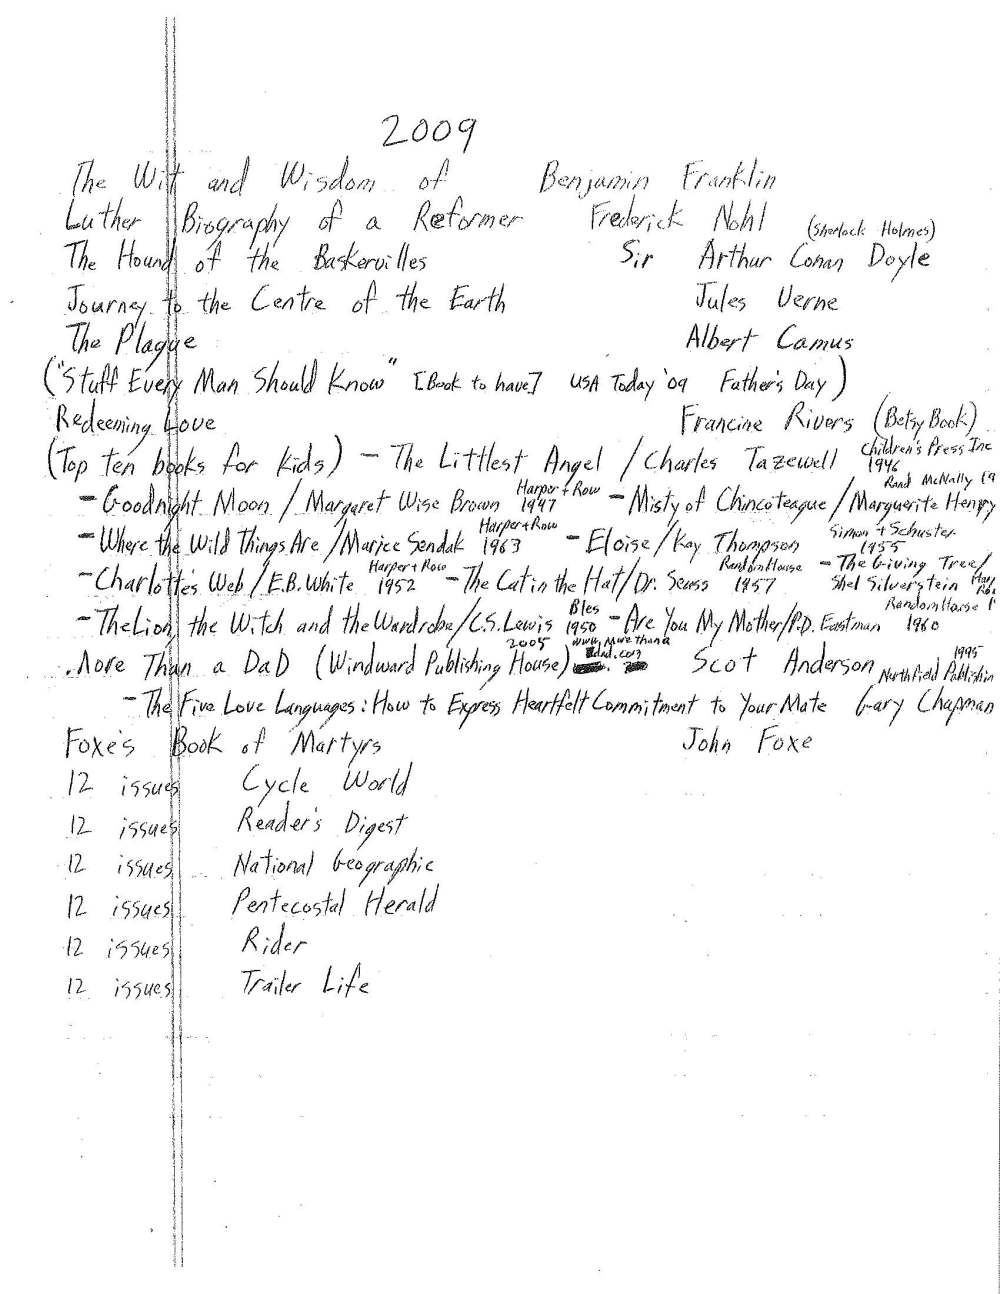 2009
The Wit and Wisdom of Benjamin Franklin
Luther Biography of a Reformer Frederick Nohl
(Sherlock Holmes)
The Hound of the Baskervilles Sir Arthur Conan Doyle
Journey to the Centre of the Earth Jules Verne
The Plague Albert Camus
("Stuff Every Man Should Know" [Book to have] USA Today '09 Father's Day)
Redeeming Love Francine Rivers (Betsy Book)
(Top ten books for kids) - The Littlest Angel / Charles Tazewell Children's Press Inc 1946
- Goodnight Moon / Margaret Wise Brown Harper + Row 1947 - Misty of Chincoteague / Marguerite Henry Rand McNally 19
- Where the Wild Things Are / Marice Sendak Harper + Row 1963 - Eloise / Kay Thompson Simon + Schuster 1955
- Charlotte's Web / E.B. White Harper + Row 1952 - The Cat in the Hat / Dr. Seuss Random House 1957 - The Giving Tree / Shel Silverstein
- The Lion, the Witch and the Wardrobe / C.S. Lewis Bles 1950 - Are You My Mother / P.D. Eastman Random House 1960
More Than a DaD (Windward Publishing House) 2005 www.morethana dad.com Scot Anderson
- The Five Love Languages: How to Express Heartfelt Commitment to Your Mate Gary Chapman 1995 Northfield Publishin
Foxe's Book of Martyrs John Foxe
12 issues Cycle World
12 issues Reader's Digest
12 issues National Geographic
12 issues Pentecostal Herald
12 issues Rider
12 issues Trailer Life